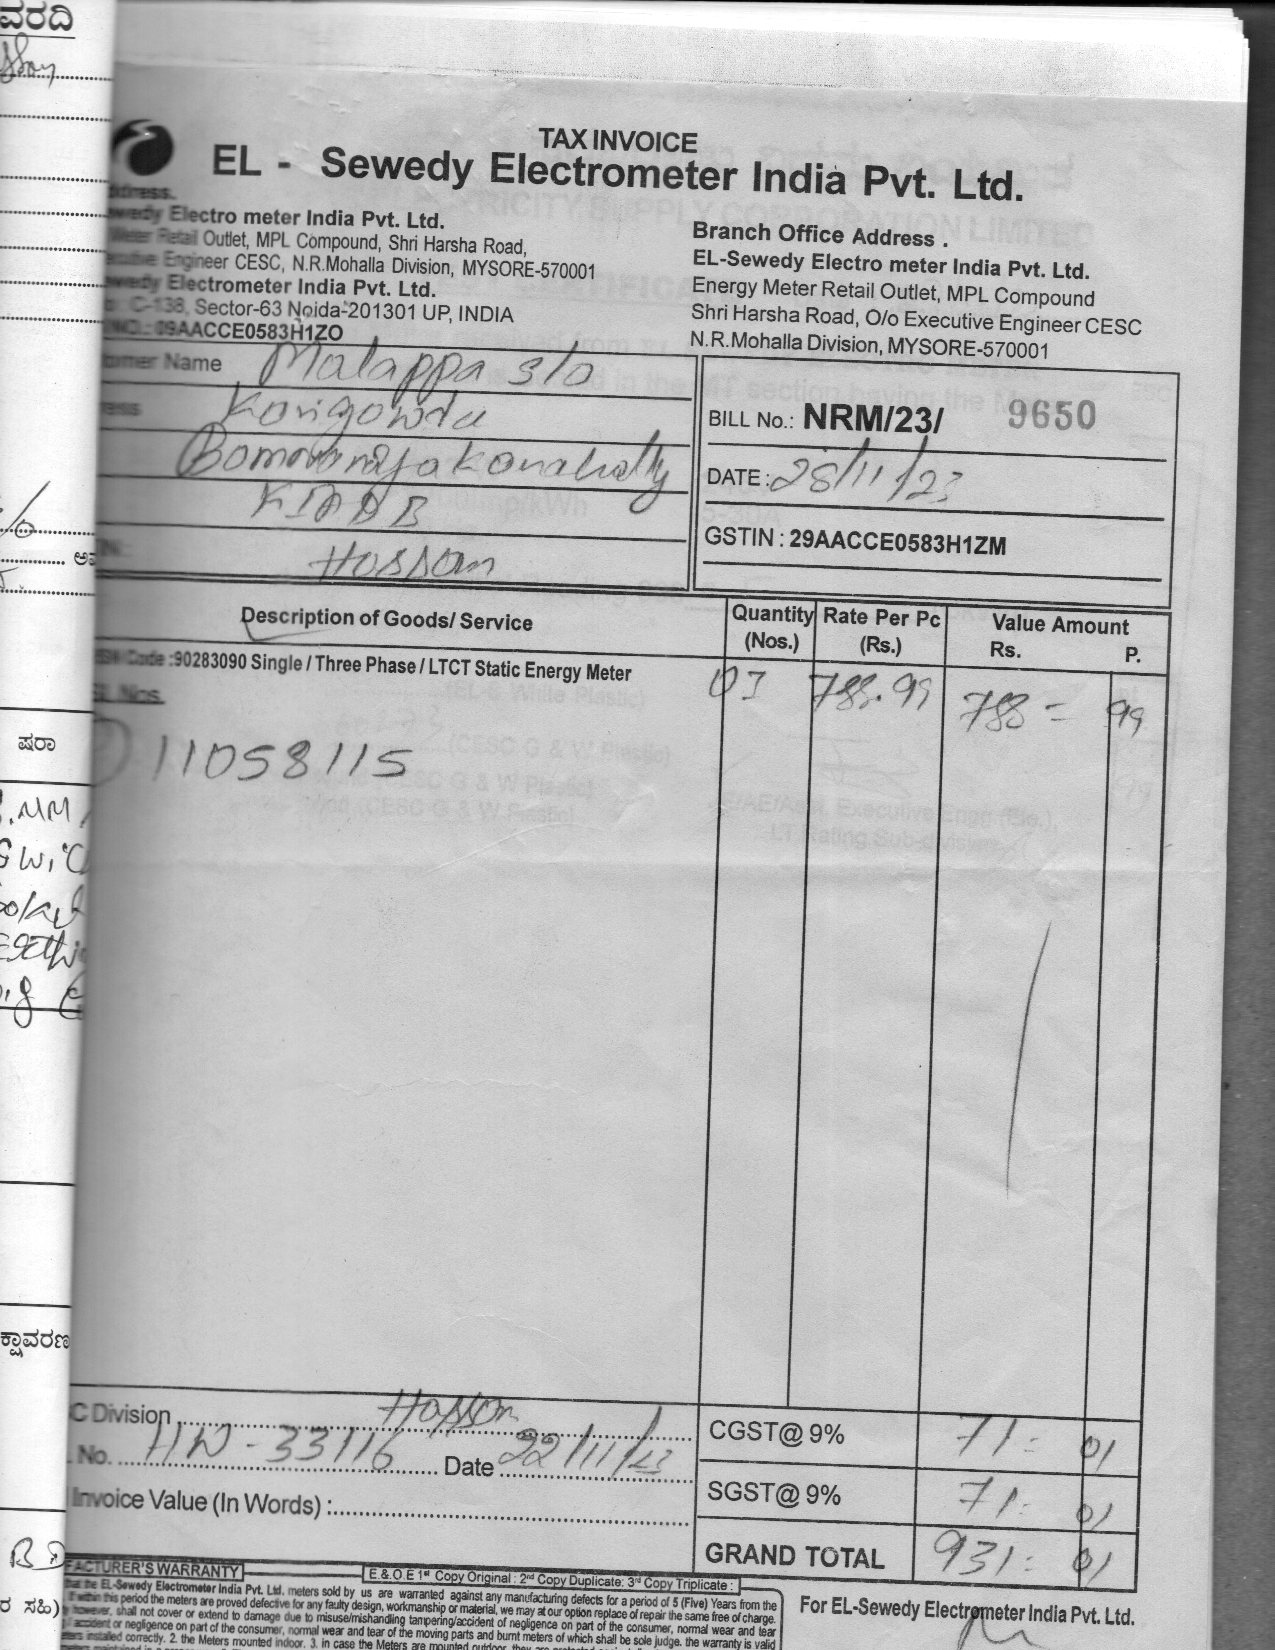 ವರದಿ
TAX INVOICE
EL - Sewedy Electrometer India Pvt. Ltd.
Electro meter India Pvt. Ltd.
Meter Retail Outlet, MPL Compound, Shri Harsha Road,
Engineer CESC, N.R.Mohalla Division, MYSORE-570001
Electrometer India Pvt. Ltd.
C-138, Sector-63 Noida-201301 UP, INDIA
09AACCE0583H1ZO
Branch Office Address .
EL-Sewedy Electro meter India Pvt. Ltd.
Energy Meter Retail Outlet, MPL Compound
Shri Harsha Road, O/o Executive Engineer CESC
N.R.Mohalla Division, MYSORE-570001
Name Malappa S/o
Karigowda
KIADB
Hassan
BILL No.: NRM/23/ 9650
DATE : 28/11/23
GSTIN : 29AACCE0583H1ZM
Description of Goods/ Service Quantity (Nos.) Rate Per Pc (Rs.) Value Amount Rs. P.
Code :90283090 Single / Three Phase / LTCT Static Energy Meter 01 788.99 788 = 99
Nos.
11058115
ಷರಾ
C Division Hassan
No. HW-33116 Date 22/11/23
Invoice Value (In Words) :
CGST@ 9% 71 = 01
SGST@ 9% 71 = 01
GRAND TOTAL 931 = 01
FACTURER'S WARRANTY
E.& O.E 1st Copy Original : 2nd Copy Duplicate: 3rd Copy Triplicate :
the EL-Sewedy Electrometer India Pvt. Ltd. meters sold by us are warranted against any manufacturing defects for a period of 5 (Five) Years from the
within this period the meters are proved defective for any faulty design, workmanship or material, we may at our option replace of repair the same free of charge.
however, shall not cover or extend to damage due to misuse/mishandling tampering/accident of negligence on part of the consumer, normal wear and tear
accident or negligence on part of the consumer, normal wear and tear of the moving parts and burnt meters of which shall be sole judge. the warranty is valid
installed correctly. 2. the Meters mounted indoor. 3. in case the Meters are mounted outdoor, they are
For EL-Sewedy Electrometer India Pvt. Ltd.
ರ ಸಹಿ)